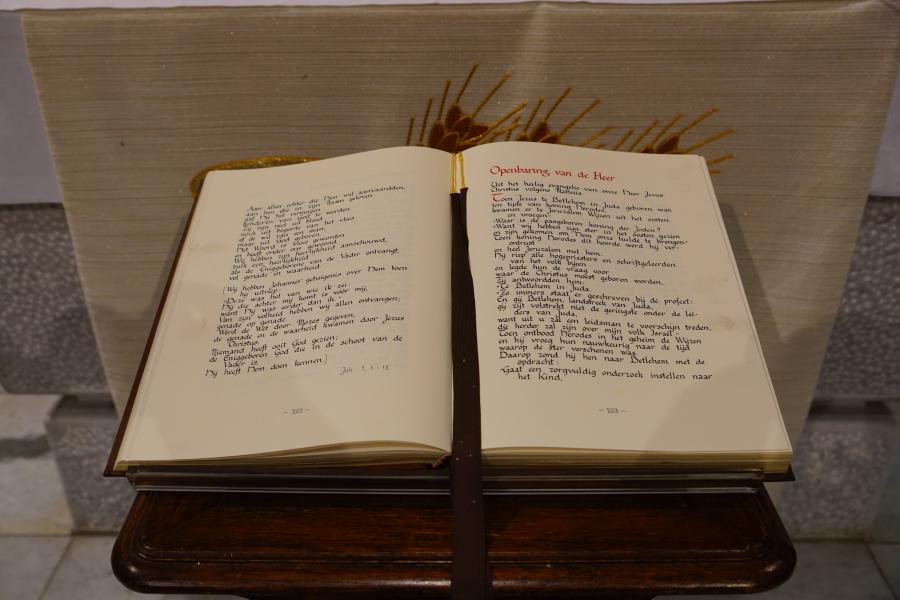 Aan allen echter die Hem wel aanvaardden,
aan hen die in zijn Naam geloven
gaf Hij het vermogen
kinderen van God te worden.
Zij zijn niet uit bloed
noch uit begeerte van het vlees
of de wil van een man,
maar uit God geboren.
Het Woord is vlees geworden
en heeft onder ons gewoond.
Wij hebben zijn heerlijkheid aanschouwd,
zulk een heerlijkheid
als de Eniggeborene van de Vader ontvangt,
vol genade en waarheid.
[Wij hebben Johannes' getuigenis over Hem toen
hij uitriep:
"Deze was het van wie ik zei:
Hij die achter mij komt is vóór mij,
want Hij was eerder dan ik."
Van zijn volheid hebben wij allen ontvangen;
genade op genade.
Werd de Wet door Mozes gegeven,
de genade en de waarheid kwamen door Jezus
Christus.
Niemand heeft ooit God gezien;
de Eniggeboren God die in de schoot van de
Vader is,
Hij heeft Hem doen kennen.]
Joh. 1, 1-18
- 202 -
Openbaring van de Heer
Uit het heilig evangelie van onze Heer Jezus
Christus volgens Matteüs.
Toen Jezus te Betlehem in Juda geboren was,
ten tijde van koning Herodes,
kwamen er te Jeruzalem Wijzen uit het oosten
en vroegen:
"Waar is de pasgeboren koning der Joden?
"Want wij hebben zijn ster in het oosten gezien
en zijn gekomen om Hem onze hulde te brengen."
Toen koning Herodes dit hoorde werd hij ver-
ontrust
en heel Jeruzalem met hem.
Hij riep alle hogepriesters en schriftgeleerden
van het volk bijeen
en legde hun de vraag voor
waar de Christus moest geboren worden.
Zij antwoordden hem:
"Te Betlehem in Juda.
"Zo immers staat er geschreven bij de profeet:
En gij Betlehem, landstreek van Juda,
gij zijt volstrekt niet de geringste onder de lei-
ders van Juda,
want uit u zal een leidsman te voorschijn treden,
die herder zal zijn over mijn volk Israël."
Toen ontbood Herodes in het geheim de Wijzen
en hij vroeg hun nauwkeurig naar de tijd
waarop de ster verschenen was.
Daarop zond hij hen naar Betlehem met de
opdracht:
"Gaat een zorgvuldig onderzoek instellen naar
het Kind,
- 203 -